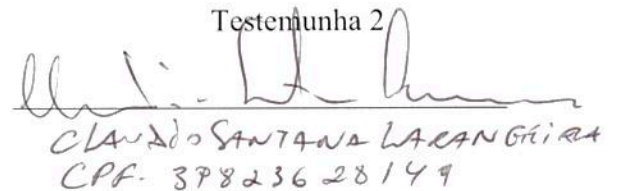 Testemunha 2
CLAUDIO SANTANA LARANGEIRA
CPF. 37823628149